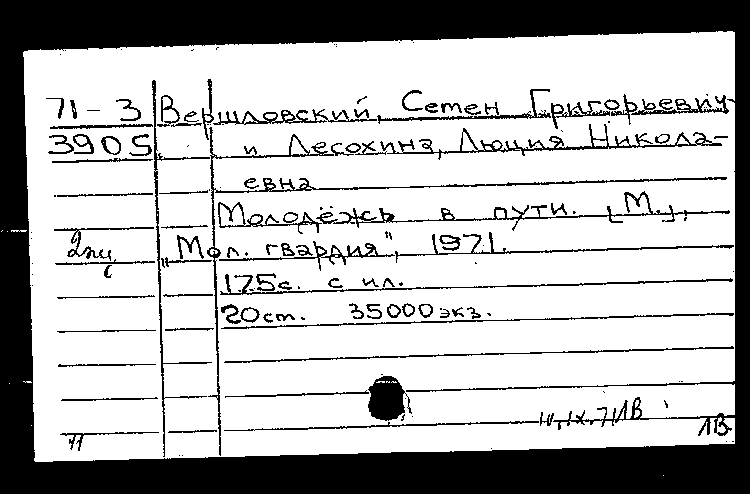 71-3 Вершловский, Семен Григорьевич
3905 и Лесохина, Люция Никола-
евна
Молодёжь в пути. [М.],
"Мол. гвардия", 1971.
175с. с ил.
20см. 35000экз.
71